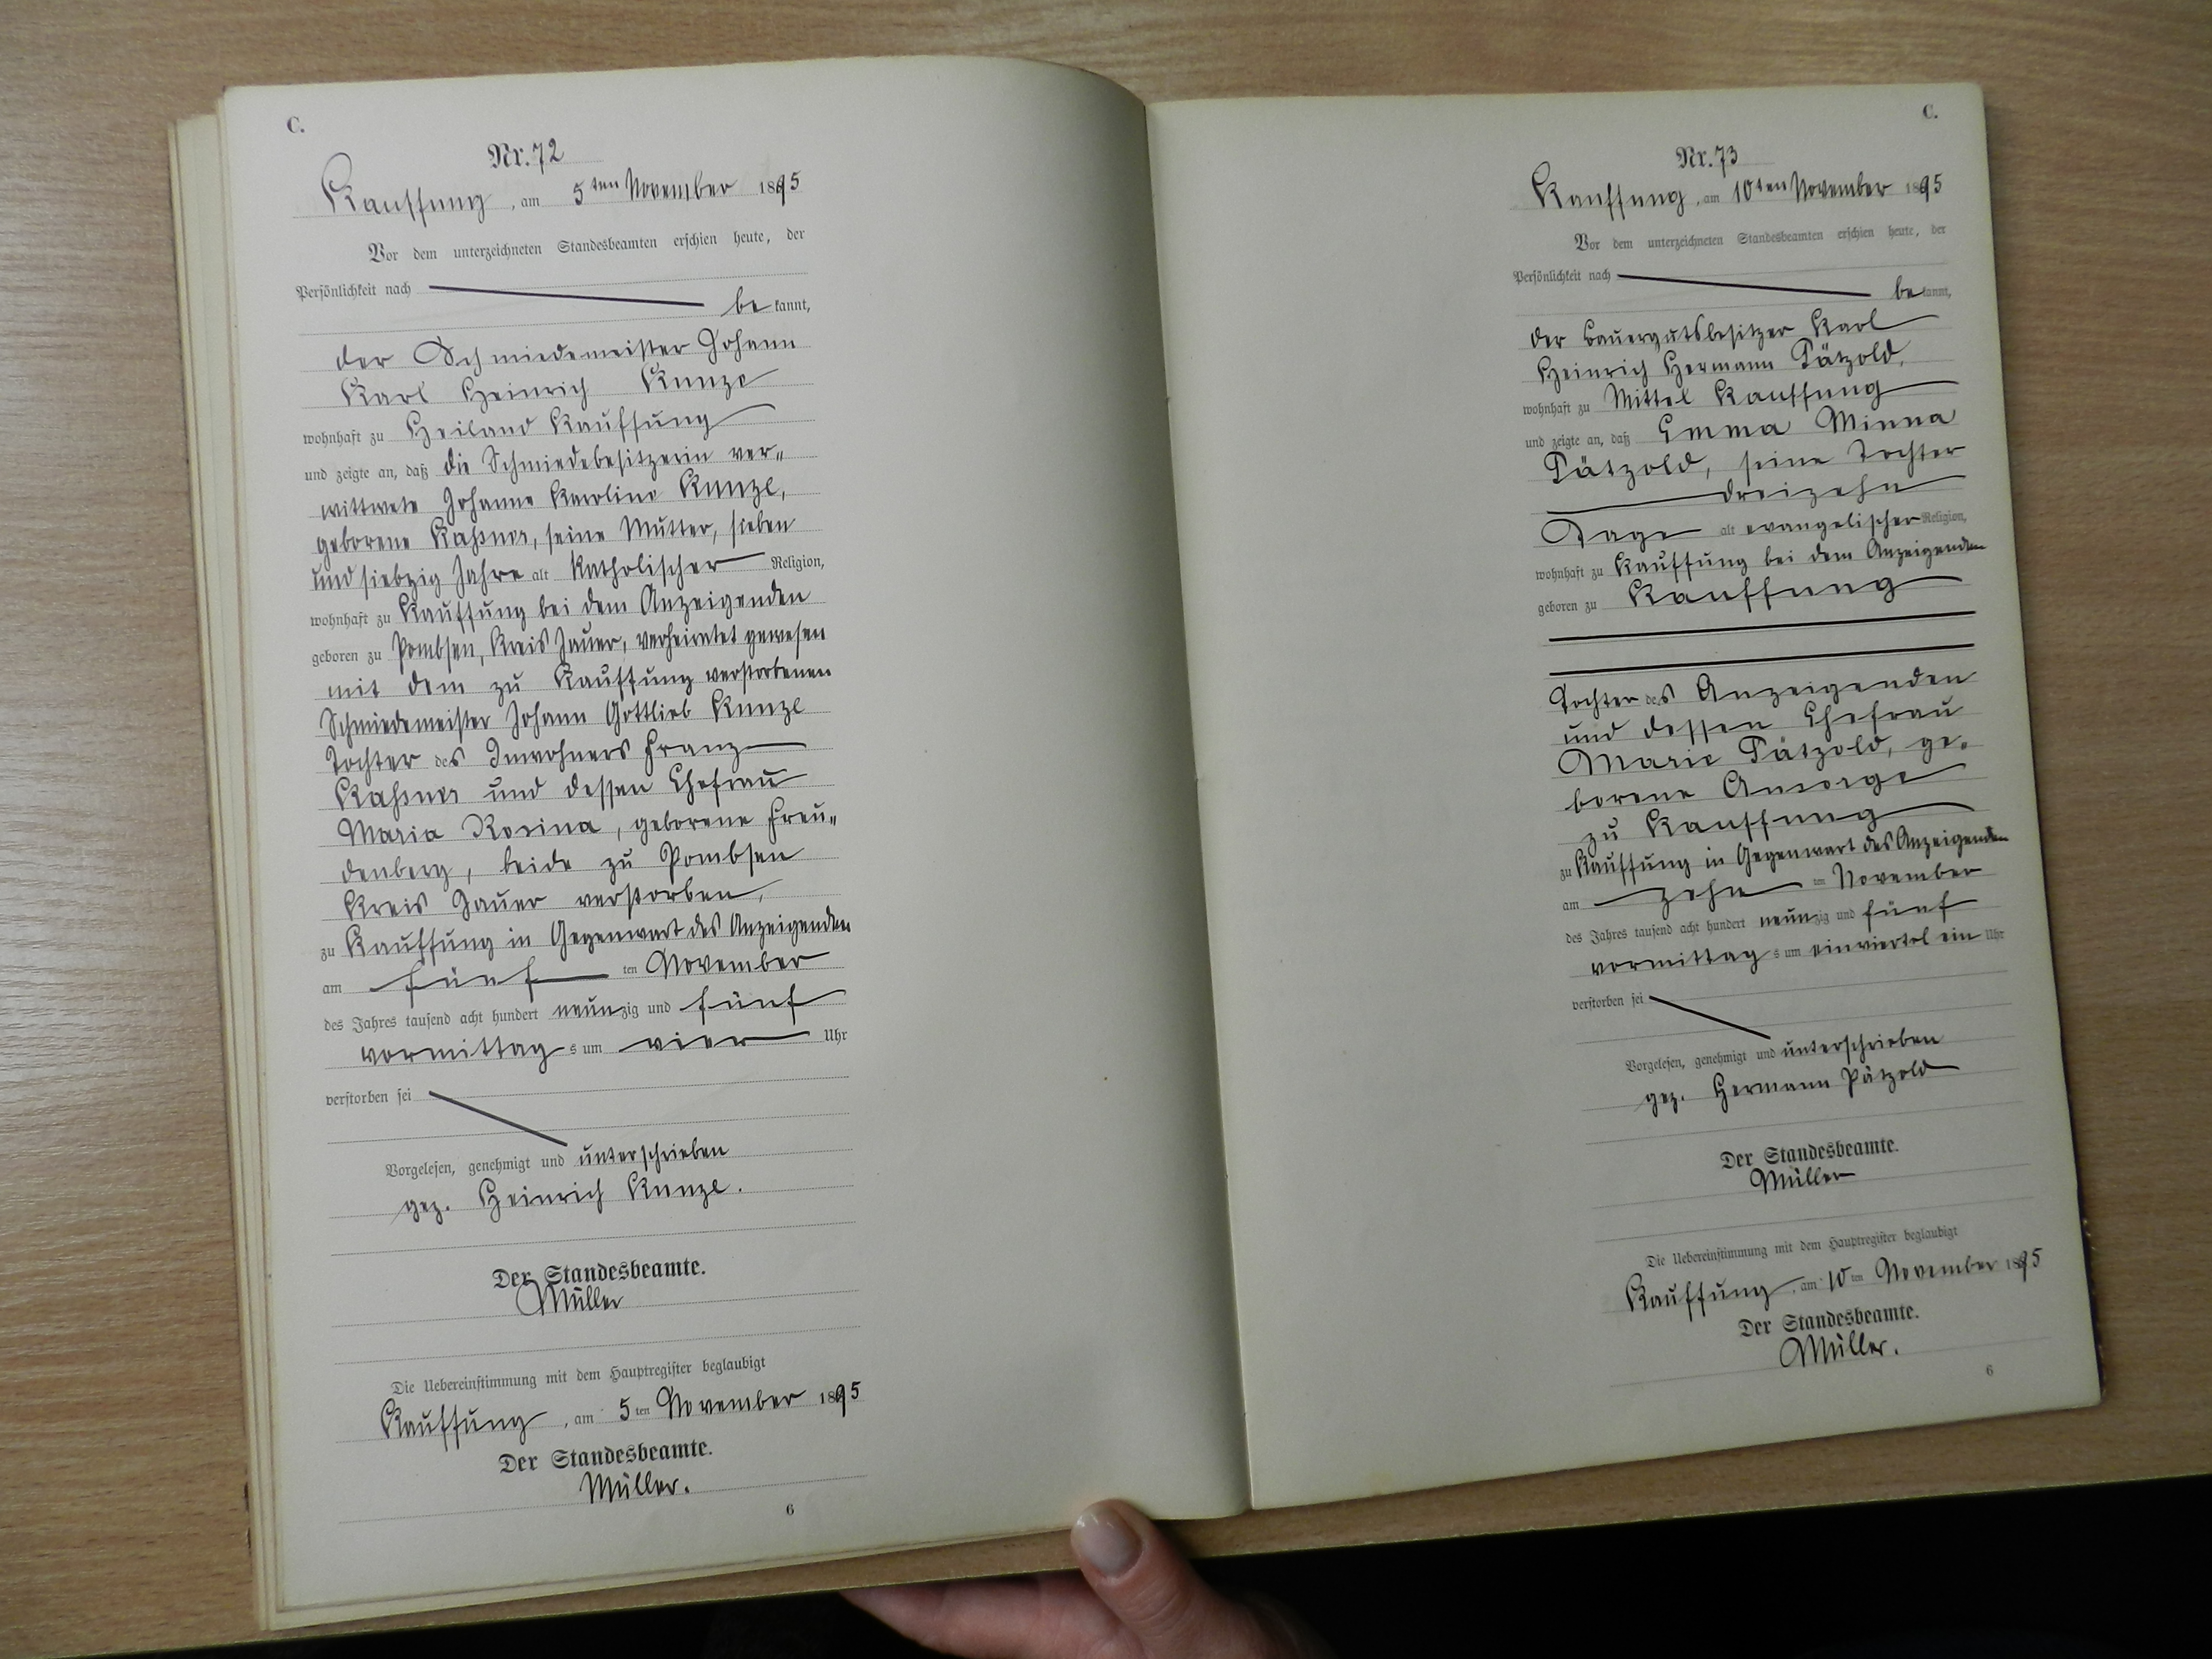 C.
Nr. 72
Kauffung, am 5ten November 1895
Vor dem unterzeichneten Standesbeamten erschien heute, der
Persönlichkeit nach
be kannt,
der Schmiedemeister Johann
Karl Heinrich Kunze
wohnhaft zu Heiland Kauffung
und zeigte an, daß die Schmiedebesitzerin ver„
wittwete Johanne Karoline Kunze,
geborene Kaßner, seine Mutter, sieben
und siebzig Jahre alt katholischer Religion,
wohnhaft zu Kauffung bei dem Anzeigenden
geboren zu Pombsen, Kreis Jauer, verheiratet gewesen
mit dem zu Kauffung verstorbenen
Schmiedemeister Johann Gottlieb Kunze
Tochter des Inwohners Franz
Kaßner und dessen Ehefrau
Maria Rosina, geborene Freu„
denberg, beide zu Pombsen
Kreis Jauer verstorben,
zu Kauffung in Gegenwart des Anzeigenden
am fünf ten November
des Jahres tausend acht hundert neunzig und fünf
vormittag s um vier Uhr
verstorben sei
Vorgelesen, genehmigt und unterschrieben
gez. Heinrich Kunze.
Der Standesbeamte.
Müller
Die Uebereinstimmung mit dem Hauptregister beglaubigt
Kauffung, am 5 ten November 1895
Der Standesbeamte.
Müller.
6
C.
Nr. 73
Kauffung, am 10ten November 1895
Vor dem unterzeichneten Standesbeamten erschien heute, der
Persönlichkeit nach
be kannt,
der Bauergutsbesitzer Karl
Heinrich Hermann Pätzold,
wohnhaft zu Mittel Kauffung
und zeigte an, daß Emma Minna
Pätzold, seine Tochter
dreizehn
Tage alt evangelischer Religion,
wohnhaft zu Kauffung bei dem Anzeigenden
geboren zu Kauffung
Tochter des Anzeigenden
und dessen Ehefrau
Marie Pätzold, ge„
borene Ansorge
zu Kauffung
zu Kauffung in Gegenwart des Anzeigenden
am zehn ten November
des Jahres tausend acht hundert neunzig und fünf
vormittag s um einviertel ein Uhr
verstorben sei
Vorgelesen, genehmigt und unterschrieben
gez. Hermann Pätzold
Der Standesbeamte.
Müller
Die Uebereinstimmung mit dem Hauptregister beglaubigt
Kauffung, am 10 ten November 1895
Der Standesbeamte.
Müller.
6